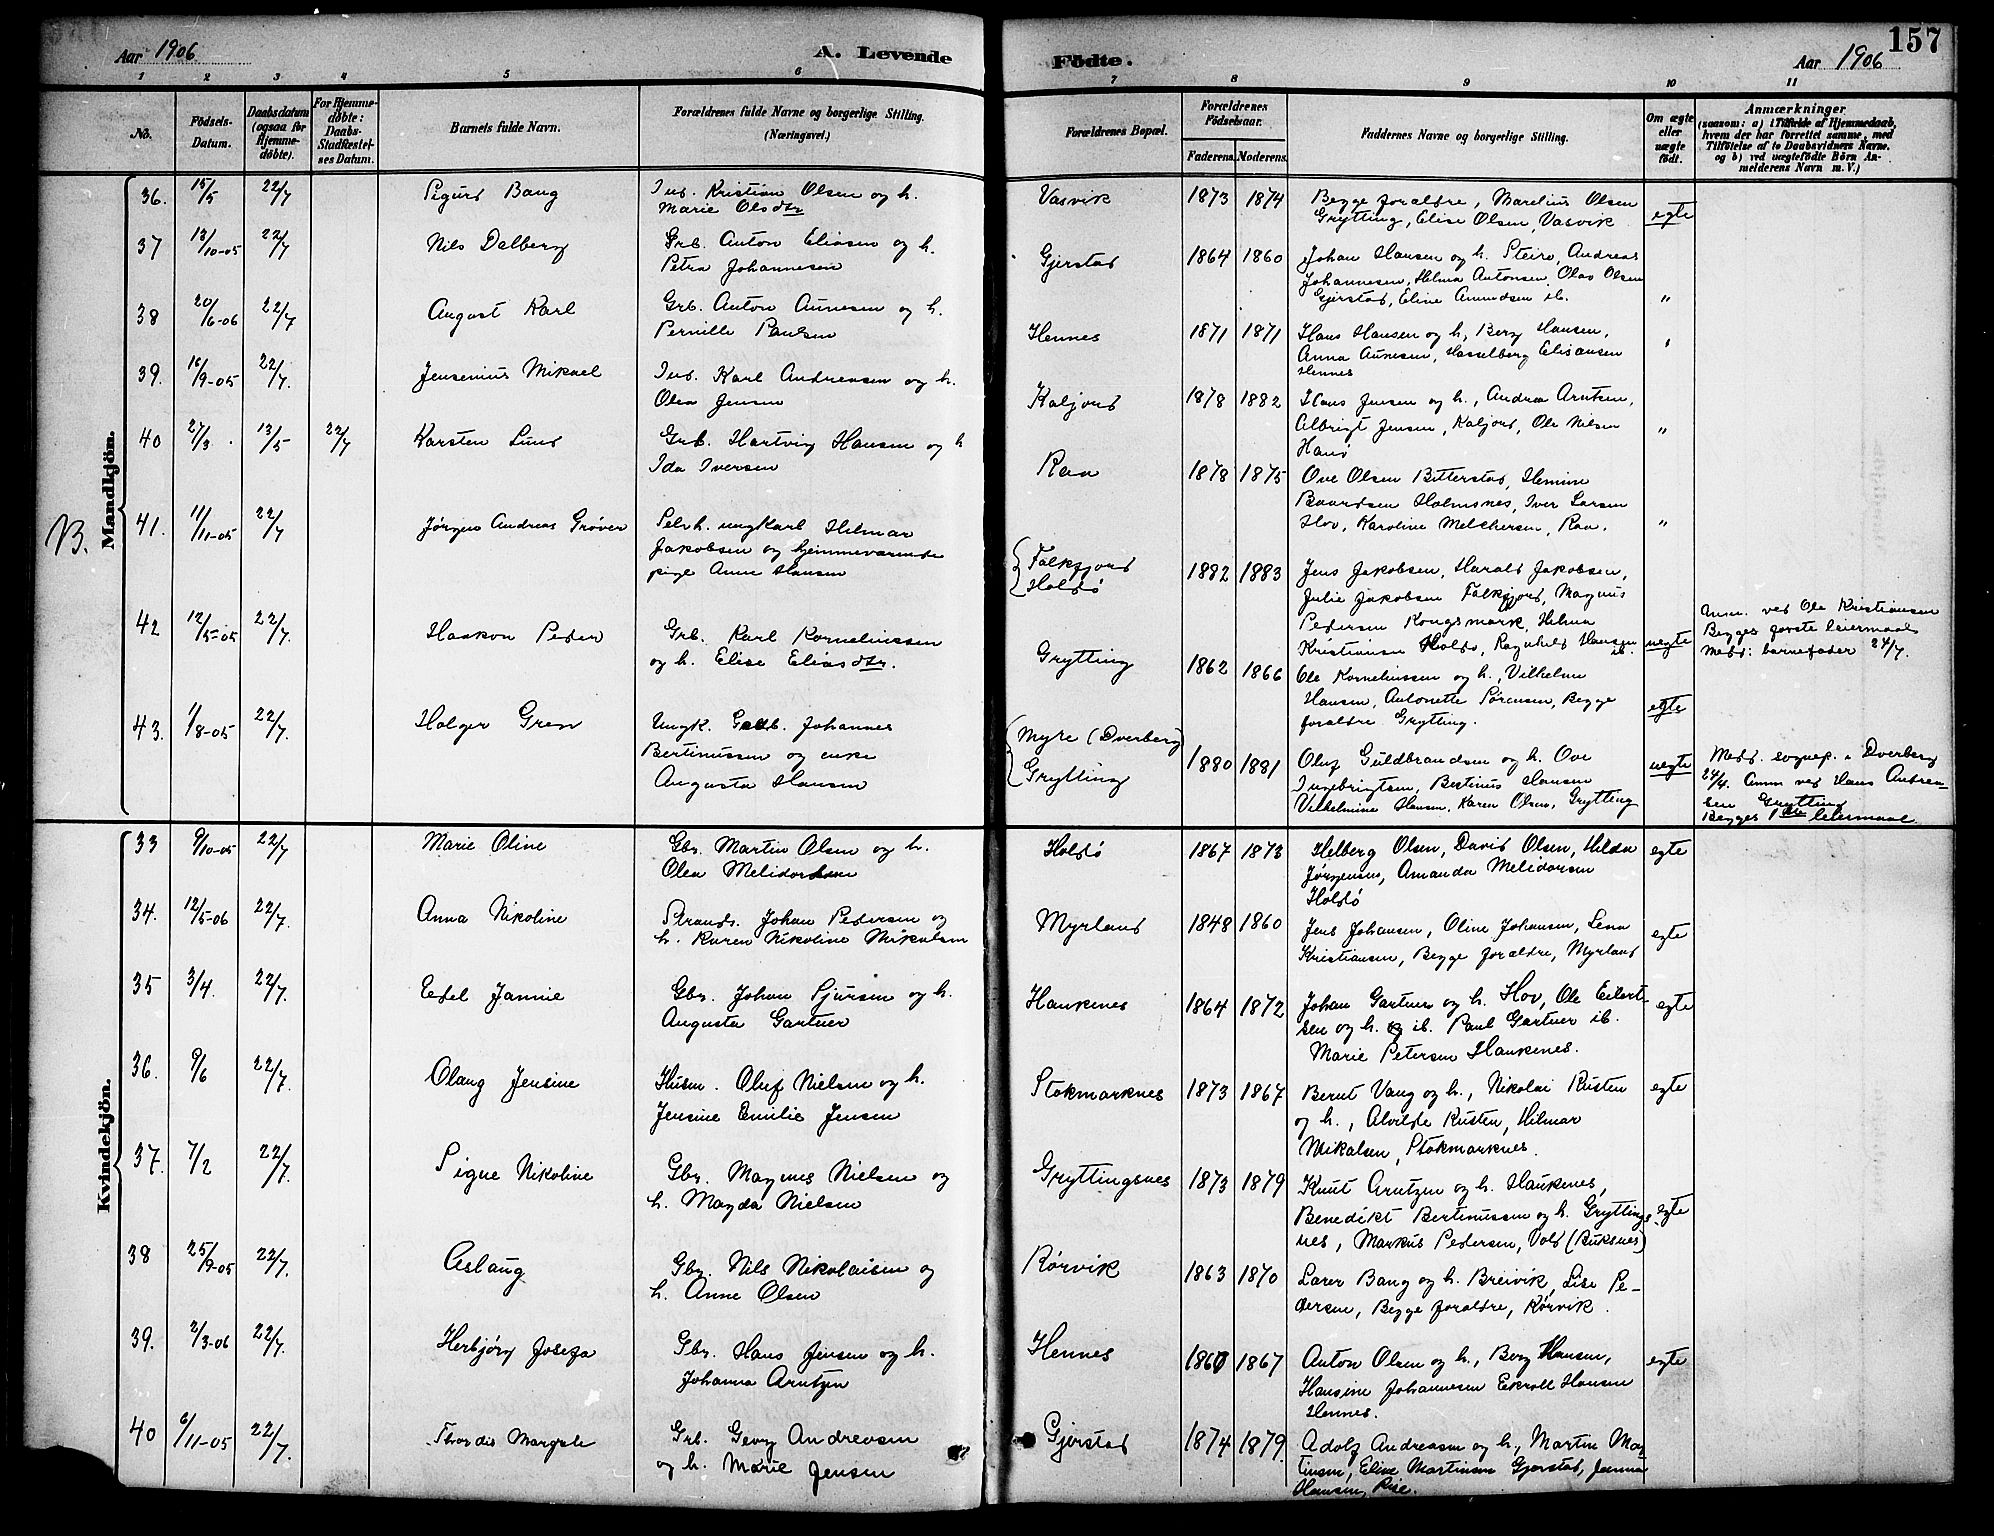 157
Aar 1906
A. Levende Födte.
Aar 1906
1 2 3 4 5 6 7 8 9 10 11
No.
Födsels-Datum.
Daabsdatum (ogsaa for Hjemmedöbte).
For Hjemmedöbte: Daabs-Stadfæstelses Datum.
Barnets fulde Navn.
Forældrenes fulde Navne og borgerlige Stilling.
(Næringsvei.)
Forældrenes Bopæl.
Forældrenes Födselsaar.
Faderens. Moderens.
Faddernes Navne og borgerlige Stilling.
Om ægte eller uægte födt.
Anmærkninger
(saasom: a) i Tilfælde af Hjemmedaab, hvem der har forrettet samme, med Tilföielse af to Daabsvidners Navne. og b) ved uægtefödte Börn Anmelderens Navn m. V.)
B.
Mandkjön.
36. 15/5 22/7 Sigurd Bang
Inds. Kristian Olsen og h.
Marie Olsdtr
Vasvik 1873 1874
Begge foraldre, Marelius Olsen
Grytting, Elise Olsen, Vasvik
egte
37 13/10-05 22/7 Nils Dalberg
Grb. Anton Eliasen og h.
Petra Johannesen
Gjerstad 1864 1860
Johan Hansen og h. Steiro, Andreas
Johannesen, Helma Antonsen, Olav Olsen
Gjerstad, Eline Amundsen ib.
"
38 20/6-06 22/7 August Karl
Grb. Anton Aunesen og h.
Pernille Paulsen
Hennes 1871 1871
Hans Hansen og h, Berg Hansen,
Anna Aunesen, Hasselberg Elisansen
Hennes
"
39. 16/9-05 22/7. Jensenius Mikael
Inds. Karl Andreasen og h.
Olea Jensen
Kaljord 1878 1882
Hans Jensen og h., Andrea Arntsen,
Albrigt Jensen, Kaljord, Ole Nilsen
Hanö
"
40 27/3. 13/5 22/7 Karsten Lund
Grb. Hartvig Hansen og h
Ida Iversen
Raa 1878 1875
Ove Olsen Bitterstad, Hemine
Baardsen Holmsnes, Iver Larsen
Hov, Karoline Melchersen, Raa.
"
41. 11/11-05 22/7 Jörgen Andreas Gröver
Selvh. ungkarl Hilmar
Jakobsen og hjemmevarende
pige Anne Hansen
Falkfjord
Holdö
1882 1883
Jens Jakobsen, Harald Jakobsen,
Julie Jakobsen Falkfjord, Magnus
Pedersen Kongsmark, Helma
Kristiansen Holdö, Ragnhild Hansen ib.
uegte
Anm. ved Ole Kristiansen
Begges förste leiermaal
Medd. barnefader 24/7.
42 12/5-05 22/7. Haakon Peder
Grb. Karl Kornelinssen
og h. Elise Eliasdtr.
Grytting 1862 1866
Ole Kornelinssen og h., Vilhelm
Hansen, Antonette Sörensen, Begge
foraldre Grytting.
egte
43. 1/8-05 22/7. Holger Gren
Ungk. Gaardb. Johannes
Bertinussen og enke
Augusta Hansen
Myre (Dverberg)
Grytting
1880 1881
Oluf Guldbrandsen og h. Ove
Ingebrigtsen, Bertinus Hansen
Vilhelmine Hansen, Karen Olsen, Grytting
uegte
Medd. sognep. i Dverberg
24/7. Anm ved Hans Andrea-
sen Grytting
Begges 1ste leiermaal
Kvindekjön.
33 9/10-05 22/7 Marie Oline
Gbr. Martin Olsen og h.
Olea Melidorsen
Holdö 1867 1873
Helberg Olsen, David Olsen, Hilda
Jörgensen, Amanda Melidorsen
Holdö
egte
34. 12/5-06 22/7. Anna Nikoline
Strands. Johan Pedersen og
h. Karen Nikoline Mikalsen
Myrland 1848 1860
Jens Johansen, Oline Johansen, Lena
Kristiansen, Begge foraldre, Myrland
egte
35 3/4. 22/7. Edel Jamie
Gbr. Johan Sjursen og h.
Augusta Gartner
Haukenes 1864 1872
Johan Gartner og h. Hov, Ole Eilert-
sen og h. ib. Paul Gartner ib.
Marie Petersen Haukenes.
egte
36. 9/6 22/7. Olaug Jensine
Husm. Oluf Nielsen og h.
Jensine Emilie Jensen
Stokmarknes 1873 1867
Bernt Vang og h., Nikolai Rusten
og h., Alvilde Rusten, Hilmar
Mikalsen, Stokmarknes.
egte
37. 7/2 22/7. Signe Nikoline
Gbr. Magnus Nielsen og
h. Magda Nielsen
Gryttingsnes 1873 1879
Knut Arntzen og h. Haukenes,
Benedikt Bertinussen og h. Gryttings
nes, Markus Pedersen, Vold (Buksnes)
egte
38 25/9-05 22/7. Aslaug
Gbr. Nils Nikolaisen og
h. Anne Olsen
Rörvik 1863 1870
Lorer Bang og h. Breivik, Lise Pe-
dersen, Begge foraldre, Rörvik.
39. 2/3-06 22/7. Herbjörg Josefa
Gbr. Hans Jensen og h.
Johanna Arntzen
Hennes 1860 1867
Anton Olsen og h., Berg Hansen,
Hansine Johannesen Ekroll Hansen
Hennes.
egte
40 6/11-05 22/7. Thordis Margrete
Grb. Georg Andreasen
og h. Marie Jensen
Gjerstad 1874 1879.
Adolf Andreasen og h., Martin Mar
tinsen, Eline Martinsen Gjerstad, Janna
Hansen, Rise.